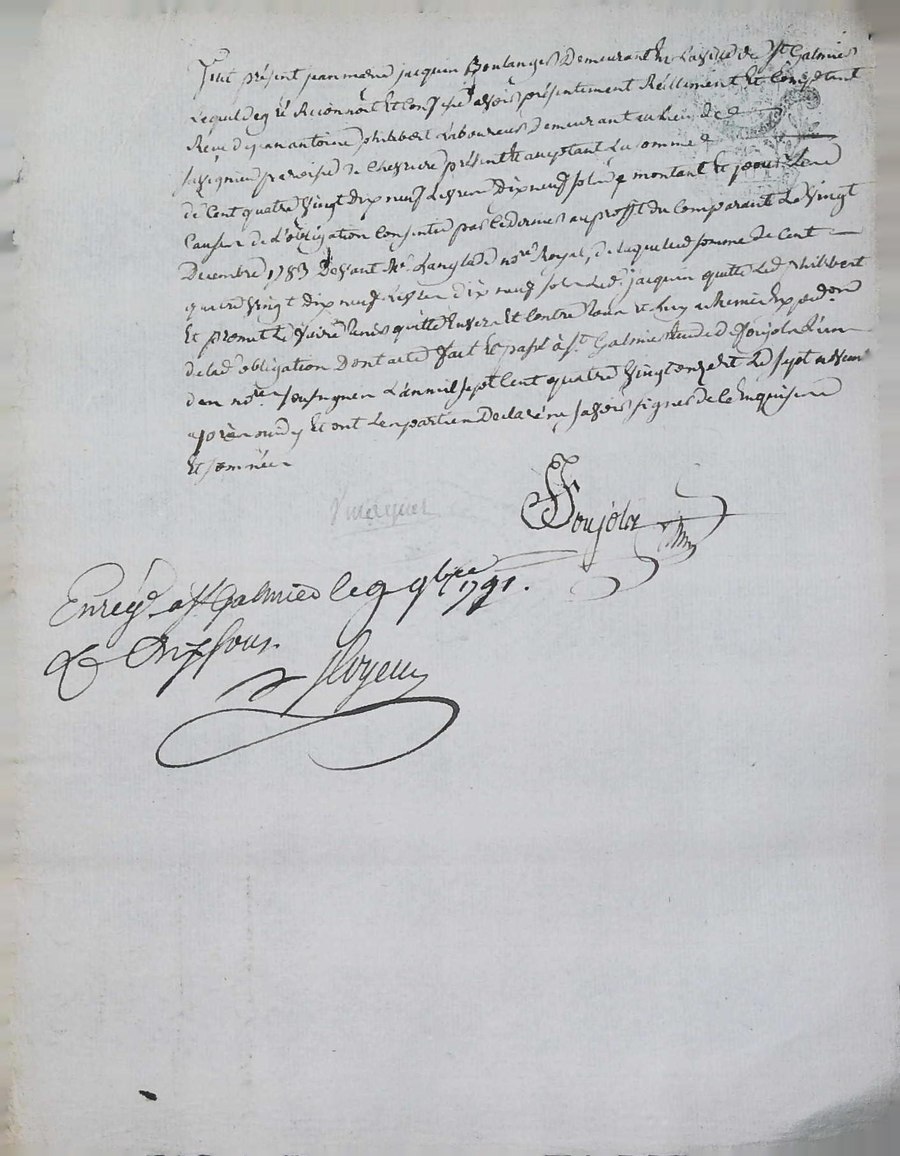 Fut présent jean marie jacquin Boulanger Demeurant En la ville de St Galmier
Lequel de gré Reconnoît Et Confesse avoir présentement Réellement Et Comptant
Reçu d'jean antoine philibert Laboureur demeurant au lieu de
parroisse de Chevriere présent Et acceptant La somme
de Cent quatre vingt dix neuf Livres Dix neuf sols montant Et pour
Causes de L'obligation Consentie par Ce dernier au proffit du Comparant Le vingt
Decembre 1783 Devant Me Langlade nore Royal, de laquelle somme de Cent
quatre vingt dix neuf Livres dix neuf sols Led. jacquin quitte Led. philibert
Et promet Le faire tenir quitte Envers Et Contre tous
de lad. obligation Dont acte fait Et passé à St. Galmier Etude de foujols L'un
des nores. soussignés L'an mil sept Cent quatre vingt onze Et Le sept
après midy Et ont Les parties Declaré ne savoir signer de ce Enquises
Et sommées
foujols
Enregé. a St Galmier le 9 9bre 1791.